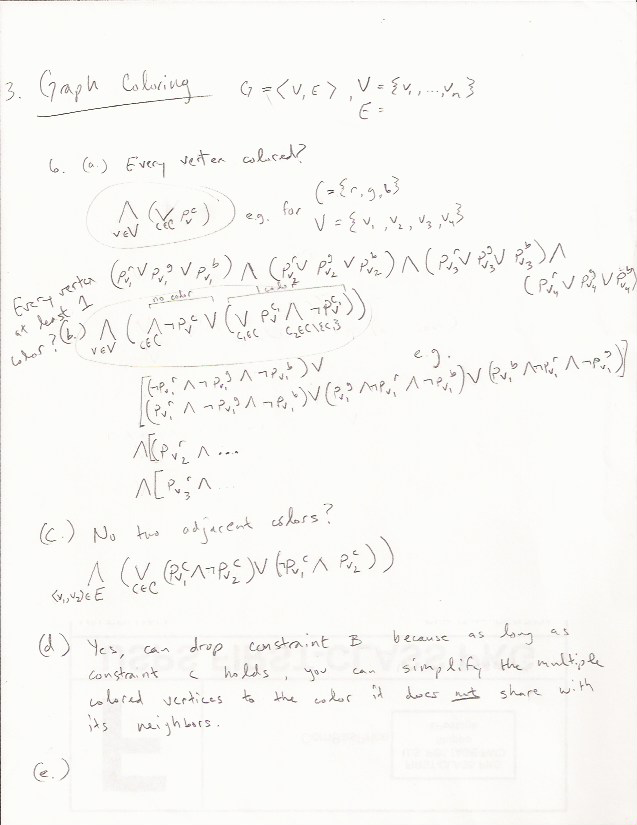 3. Graph Coloring G = <V, E>, V = {v₁, ..., vₙ}
E =
6. (a.) Every vertex colored?
⋀_{v∈V} (⋁_{c∈C} P_v^c) e.g. for C = {r, g, b}
V = {v₁, v₂, v₃, v₄}
(P_{v₁}^r ∨ P_{v₁}^g ∨ P_{v₁}^b) ∧ (P_{v₂}^r ∨ P_{v₂}^g ∨ P_{v₂}^b) ∧ (P_{v₃}^r ∨ P_{v₃}^g ∨ P_{v₃}^b) ∧
(P_{v₄}^r ∨ P_{v₄}^g ∨ P_{v₄}^b)
Every vertex
at least 1
color?
no color
1 color
(b.) ⋀_{v∈V} (⋀_{c∈C} ¬P_v^c ∨ (⋁_{c₁∈C} P_v^{c₁} ∧ ⋀_{c₂∈C\{c₁}} ¬P_v^{c₂}))
e.g.
[(¬P_{v₁}^r ∧ ¬P_{v₁}^g ∧ ¬P_{v₁}^b) ∨
(P_{v₁}^r ∧ ¬P_{v₁}^g ∧ ¬P_{v₁}^b) ∨ (P_{v₁}^g ∧ ¬P_{v₁}^r ∧ ¬P_{v₁}^b) ∨ (P_{v₁}^b ∧ ¬P_{v₁}^r ∧ ¬P_{v₁}^g)]
∧[(P_{v₂}^r ∧ ...
∧[P_{v₃}^r ∧ ...
(C.) No two adjacent colors?
⋀_{<v₁,v₂>∈E} (⋁_{c∈C} (P_{v₁}^c ∧ ¬P_{v₂}^c) ∨ (¬P_{v₁}^c ∧ P_{v₂}^c))
(d) Yes, can drop constraint B because as long as
constraint c holds, you can simplify the multiple
colored vertices to the color it does not share with
its neighbors.
(e.)